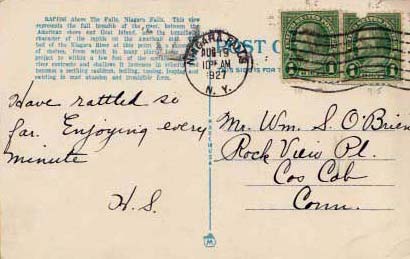 RAPIDS Above The Falls, Niagara Falls. This view
represents the full breadth of the river, between the
American shore and Goat Island.
character of the rapids on the American side. The
bed of the Niagara River at this point is a
of shelves, from which in many places
project to within a few feet of the surface.
ther contracts and shallows it
becomes a seething cauldron, boiling, tossing, leaping and
twisting in mad abandon and irresistible force.
NIAGARA FALLS
AUG
10 AM
1927
N.Y.
POST C
THIS SIDE IS FOR
1 1
1 1
Have rattled so
far. Enjoying every
minute
H. S.
Mr. Wm. S. O'Brien
Rock View Pl.
Cos Cob
Conn.